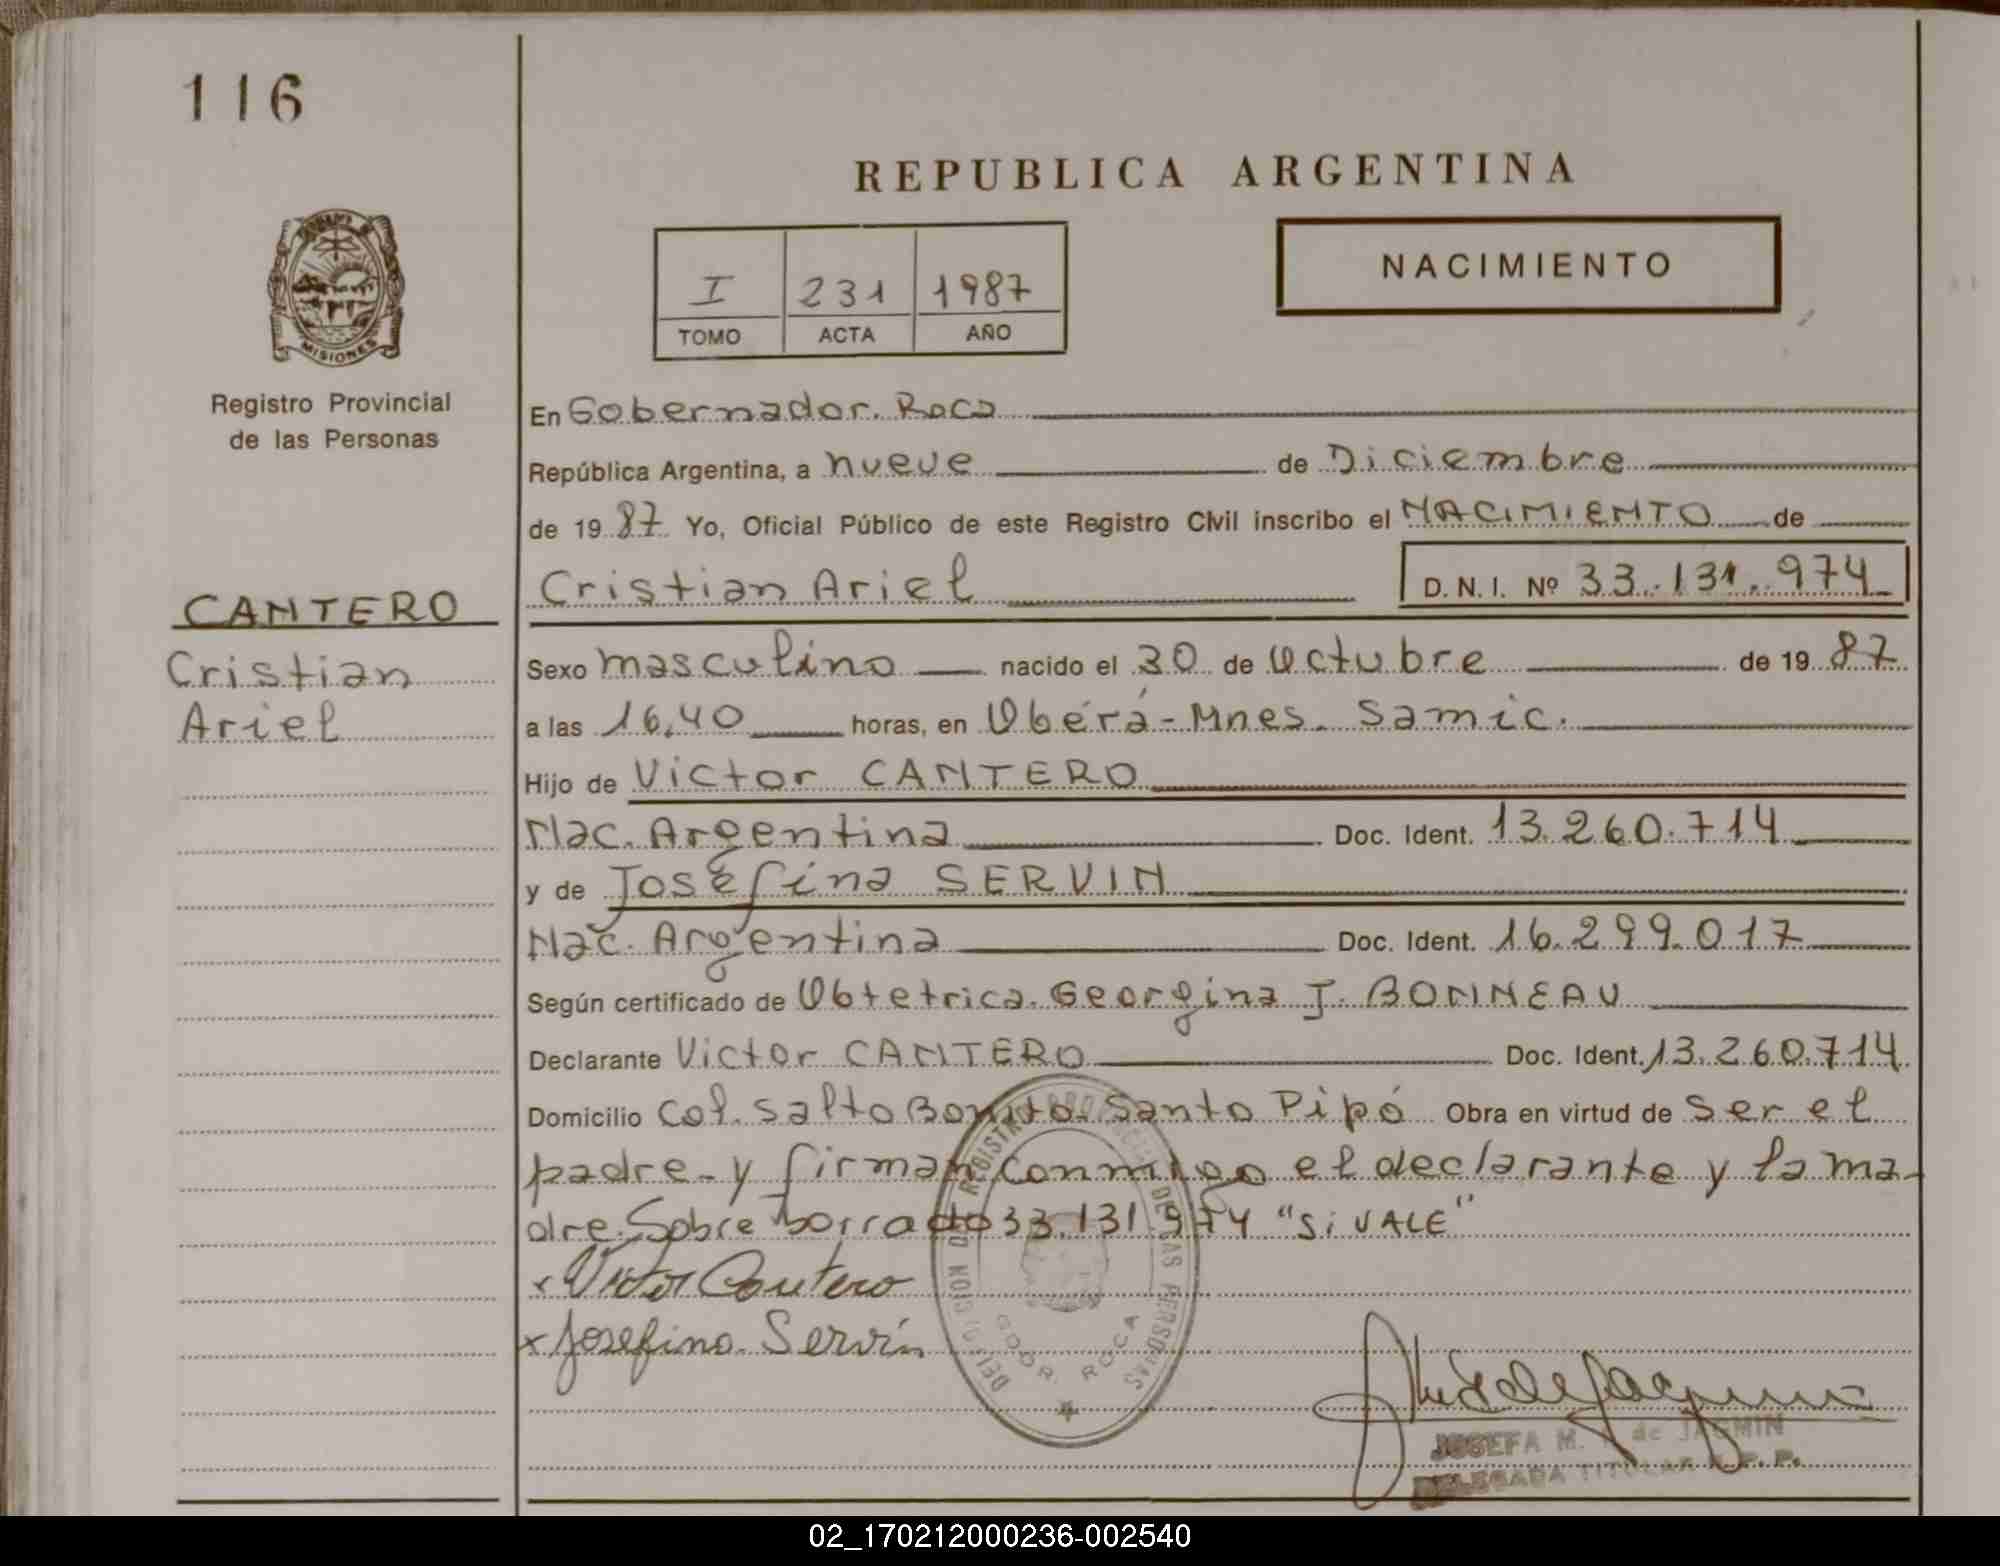 116
REPUBLICA ARGENTINA
NACIMIENTO
I 231 1987
TOMO ACTA AÑO
MISIONES
Registro Provincial
de las Personas
En Gobernador Roca
República Argentina, a nueve de Diciembre
de 1987 Yo, Oficial Público de este Registro Civil inscribo el NACIMIENTO de
Cristian Ariel D. N. I. Nº 33.131.974
CANTERO
Cristian
Ariel
Sexo masculino nacido el 30 de Octubre de 1987
a las 16,40 horas, en Oberá-Mnes. Samic.
Hijo de Victor CANTERO
Nac. Argentina Doc. Ident. 13.260.714
y de Josefina SERVIN
Nac. Argentina Doc. Ident. 16.299.017
Según certificado de Obtetrica Georgina J. BONNEAU
Declarante Victor CANTERO Doc. Ident. 13.260.714
Domicilio Col. Salto Bonito-Santo Pipó Obra en virtud de ser el
padre-y firman conmigo el declarante y la ma-
dre. Sobre borrado 33.131.974 "Si VALE"
x Victor Cantero
x Josefina Servín
REGISTRO PROVINCIAL DE LAS PERSONAS
GDOR. ROCA
JOSEFA M. de JASMIN
DELEGADA TITULAR R. P. P.
02_170212000236-002540